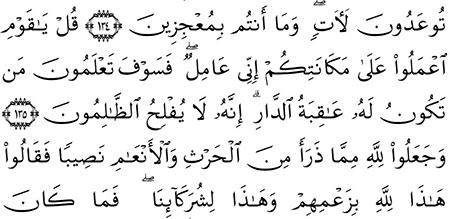 تُوعَدُونَ لَأَتٍۖ وَمَا أَنتُم بِمُعْجِزِينَ ١٣٤ قُلْ يَٰقَوْمِ
اعْمَلُوا۟ عَلَىٰ مَكَانَتِكُمْ إِنِّى عَامِلٌۖ فَسَوْفَ تَعْلَمُونَ مَن
تَكُونُ لَهُۥ عَٰقِبَةُ الدَّارِۗ إِنَّهُۥ لَا يُفْلِحُ الظَّٰلِمُونَ ١٣٥
وَجَعَلُوا۟ لِلَّهِ مِمَّا ذَرَأَ مِنَ الْحَرْثِ وَالْأَنْعَٰمِ نَصِيبًا فَقَالُوا۟
هَٰذَا لِلَّهِ بِزَعْمِهِمْ وَهَٰذَا لِشُرَكَآئِنَاۖ فَمَا كَانَ